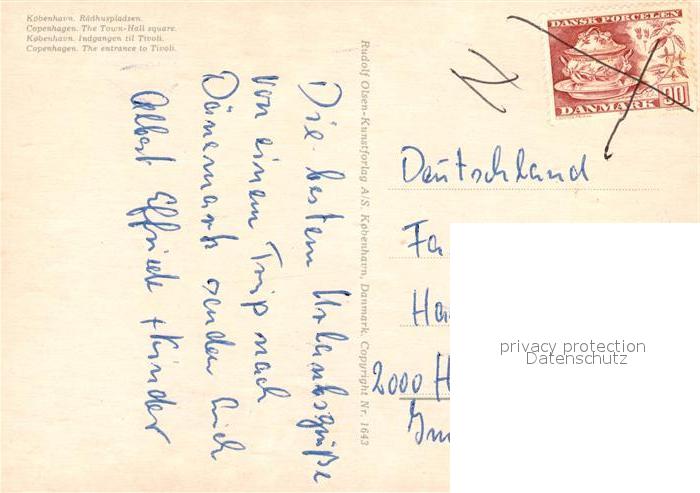 København. Rådhuspladsen.
Copenhagen. The Town-Hall square.
København. Indgangen til Tivoli.
Copenhagen. The entrance to Tivoli.
DANSK PORCELÆN
DANMARK 90
Rudolf Olsen-Kunstforlag A/S. København, Danmark. Copyright Nr. 1643
Die besten Urlaubsgrüße
von einem Trip nach
Dänemark senden Euch
Albert Elfriede + Kinder
Deutschland
Fa
Ha
2000 H
privacy protection
Datenschutz